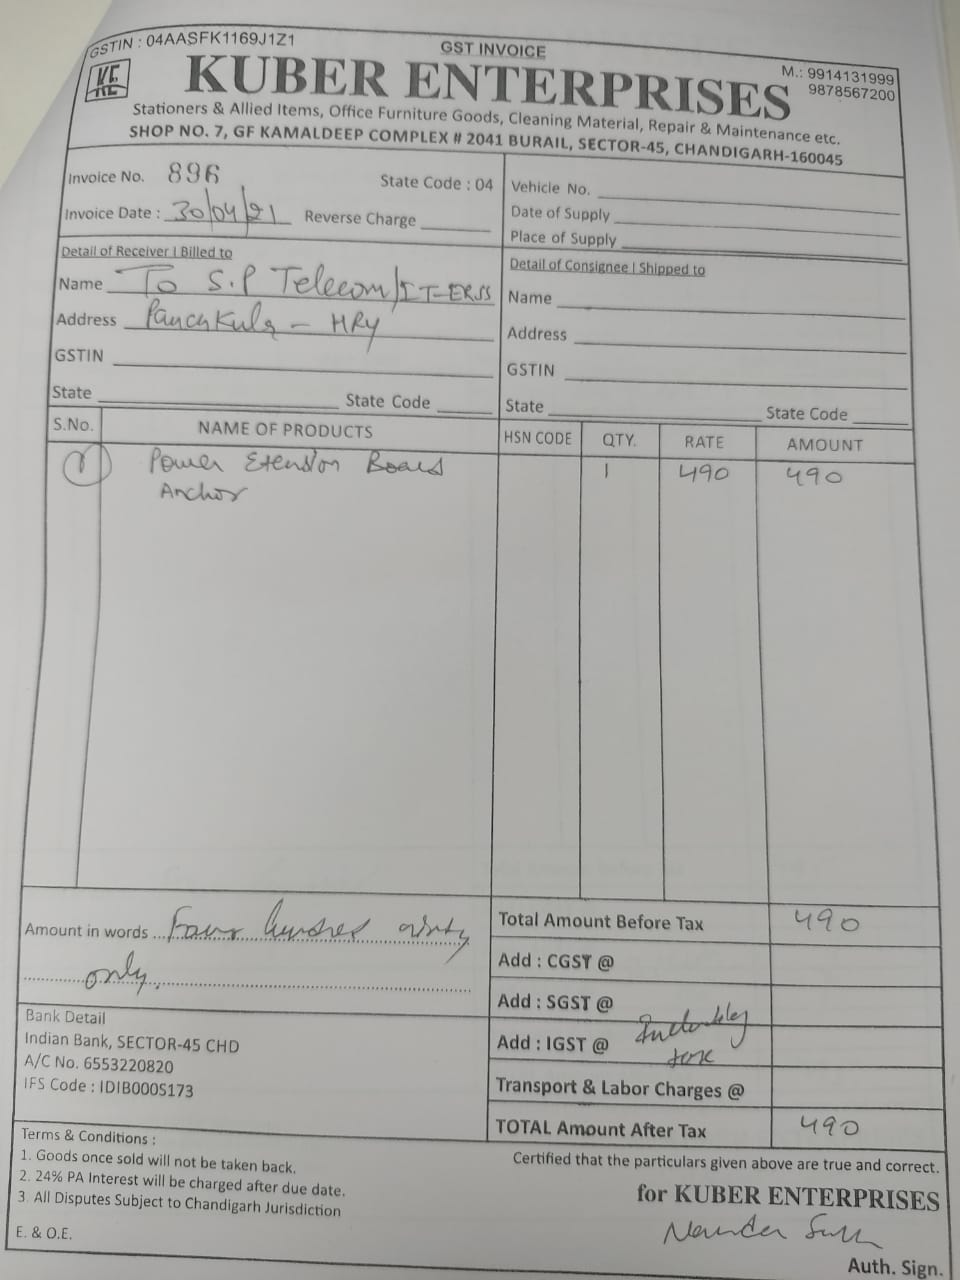 GSTIN : 04AASFK1169J1Z1
GST INVOICE
M.: 9914131999
9878567200
KE
KUBER ENTERPRISES
Stationers & Allied Items, Office Furniture Goods, Cleaning Material, Repair & Maintenance etc.
SHOP NO. 7, GF KAMALDEEP COMPLEX # 2041 BURAIL, SECTOR-45, CHANDIGARH-160045
Invoice No. 896 State Code : 04
Invoice Date : 30/04/21 Reverse Charge
Vehicle No.
Date of Supply
Place of Supply
Detail of Receiver | Billed to
Name To S.P Telecom/IT-ERSS
Address Panchkula - HRY
GSTIN
State State Code
Detail of Consignee | Shipped to
Name
Address
GSTIN
State State Code
S.No. NAME OF PRODUCTS HSN CODE QTY. RATE AMOUNT
1 Power Extension Board 1 490 490
Anchor
Amount in words Four hundred ninty
only.
Total Amount Before Tax 490
Add : CGST @
Add : SGST @
Add : IGST @
tax
Transport & Labor Charges @
TOTAL Amount After Tax 490
Bank Detail
Indian Bank, SECTOR-45 CHD
A/C No. 6553220820
IFS Code : IDIB000S173
Terms & Conditions :
1. Goods once sold will not be taken back.
2. 24% PA Interest will be charged after due date.
3. All Disputes Subject to Chandigarh Jurisdiction
E. & O.E.
Certified that the particulars given above are true and correct.
for KUBER ENTERPRISES
Auth. Sign.